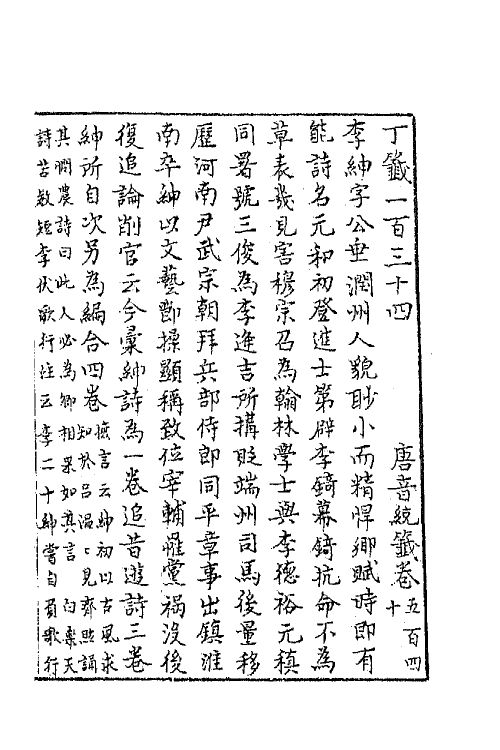 丁籤一百三十四 唐音統籤卷五百四十
李紳字公垂潤州人貌眇小而精悍鄉賦時即有
能詩名元和初登進士第辟李錡幕錡抗命不為
草表幾見害穆宗召為翰林學士與李德裕元稹
同署號三俊為李逢吉所搆貶端州司馬後量移
歷河南尹武宗朝拜兵部侍郎同平章事出鎮淮
南卒紳以文藝節操顯稱致位宰輔罹黨禍沒後
復追論削官云今彙紳詩為一卷追昔遊詩三卷
紳所自次另為編合四卷摭言云紳初以古風求
知於呂溫溫見齊煦誦
其憫農詩曰此人必為卿相果如其言 白樂天
詩苦教短李伏歌行注云李二十紳嘗自負歌行